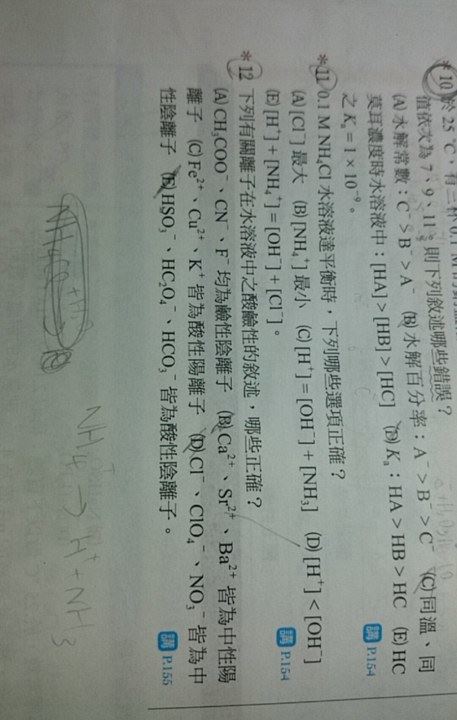 *10 於 25 ℃,有三種 0.1 M
值依次為 7、9、11。則下列敘述哪些錯誤?
(A) 水解常數:C⁻ > B⁻ > A⁻ (B) 水解百分率:A⁻ > B⁻ > C⁻ (C) 同溫、同
莫耳濃度時水溶液中:[HA] > [HB] > [HC] (D) Kₐ:HA > HB > HC (E) HC
之 Kₐ = 1 × 10⁻⁹。
講 P.154
*11 0.1 M NH₄Cl 水溶液達平衡時,下列哪些選項正確?
(A) [Cl⁻] 最大 (B) [NH₄⁺] 最小 (C) [H⁺] = [OH⁻] + [NH₃] (D) [H⁺] < [OH⁻]
(E) [H⁺] + [NH₄⁺] = [OH⁻] + [Cl⁻]。
講 P.154
*12 下列有關離子在水溶液中之酸鹼性的敘述,哪些正確?
(A) CH₃COO⁻、CN⁻、F⁻ 均為鹼性陰離子 (B) Ca²⁺、Sr²⁺、Ba²⁺ 皆為中性陽
離子 (C) Fe²⁺、Cu²⁺、K⁺ 皆為酸性陽離子 (D) Cl⁻、ClO₄⁻、NO₃⁻ 皆為中
性陰離子 (E) HSO₃⁻、HC₂O₄⁻、HCO₃⁻ 皆為酸性陰離子。
講 P.155
NH₄⁺ → H⁺ + NH₃